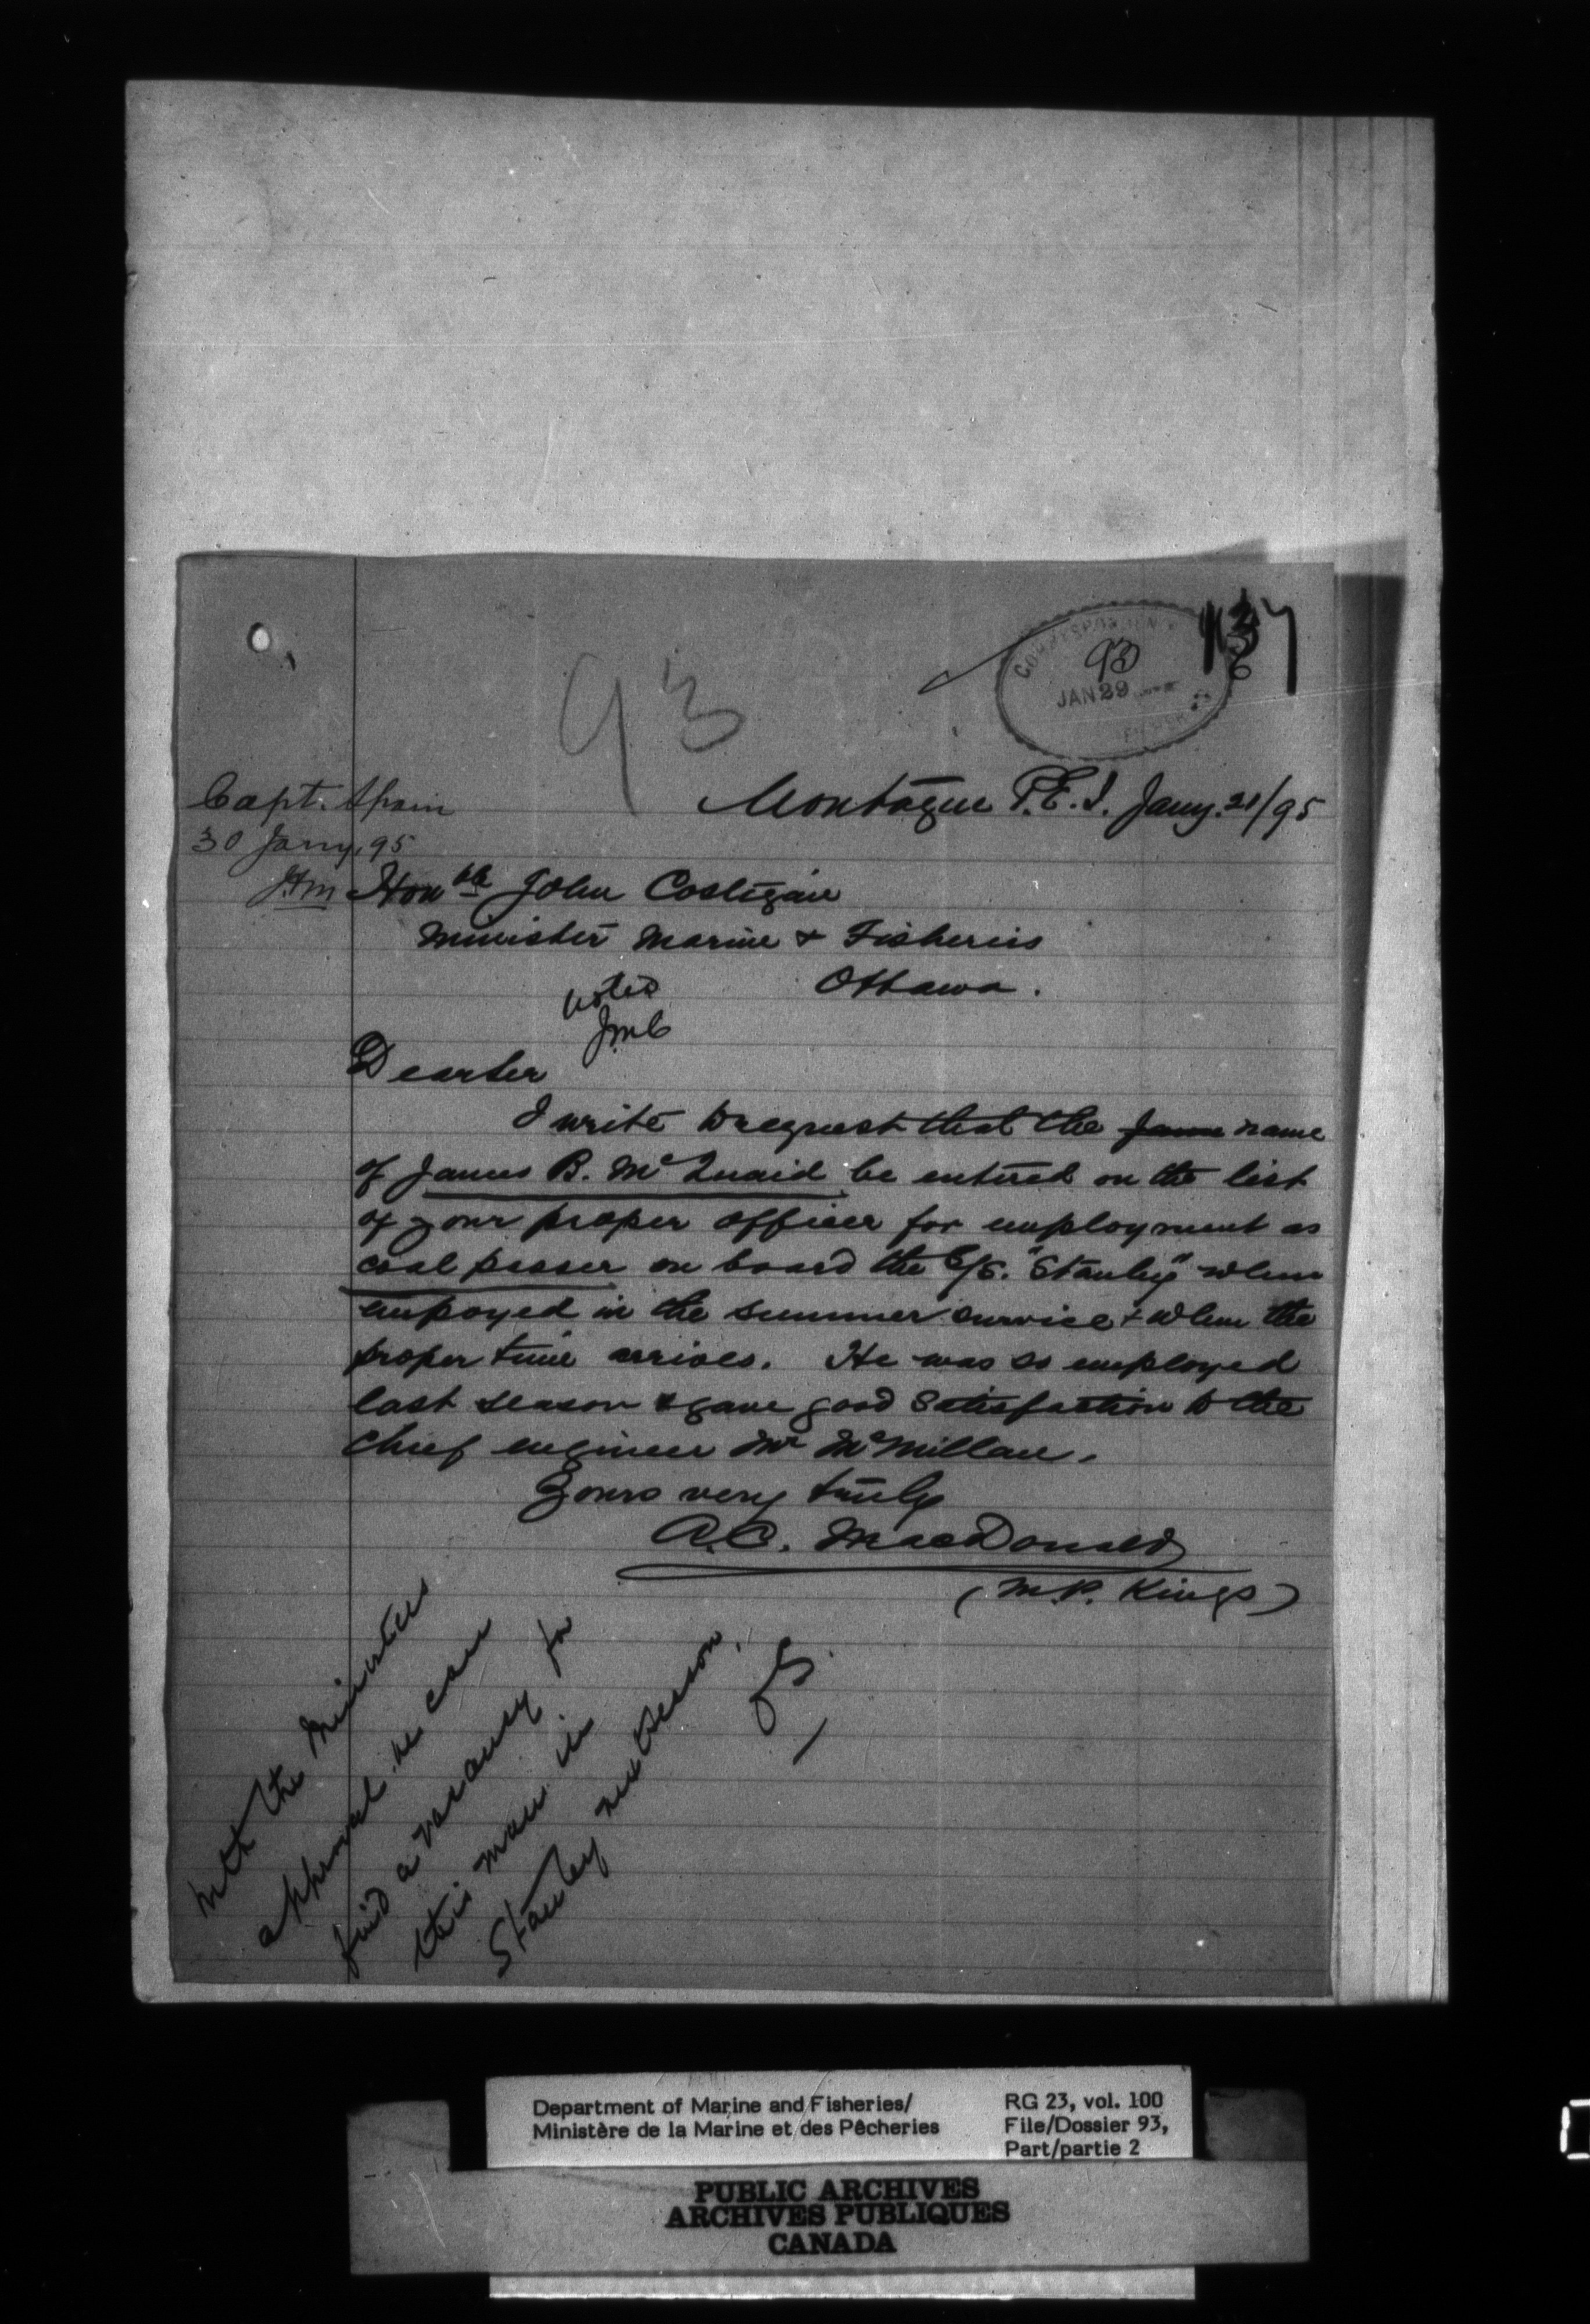 93
93
JAN 29
Capt. Spain
30 Jany, 95
Montague P.E.I. Jany. 21/95
Honble John Costigan
Minister Marine & Fisheries
Ottawa.
noted
JMC
Dear Sir
I write to request that the name
of James B. McQuaid be entered on the list
of your proper officer for employment as
coal passer on board the S/S. "Stanley" when
employed in the summer service & when the
proper time arrives. He was so employed
last season & gave good satisfaction to the
chief engineer Mr McMillan.
Yours very truly
A.C. MacDonald
(M.P. Kings)
With the Ministers
approval we can
find a vacancy for
this man in
Stanley next season.
Department of Marine and Fisheries/
Ministère de la Marine et des Pêcheries
RG 23, vol. 100
File/Dossier 93,
Part/partie 2
PUBLIC ARCHIVES
ARCHIVES PUBLIQUES
CANADA